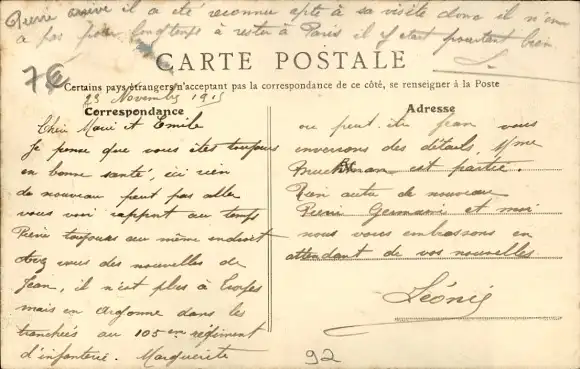 Pierre arrive il a été reconnu apte à sa visite donc il n'en
a pas pour longtemps à rester à Paris il y était pourtant bien.
L.
7€
CARTE POSTALE
Certains pays étrangers n'acceptent pas la correspondance de ce côté, se renseigner à la Poste
23 Novembre 1915
Correspondance
Chère Marie et Emile
Je pense que vous êtes toujours
en bonne santé, ici rien
de nouveau peut pas aller
vous voir rapport au temps
Pierre toujours au même endroit
Avez vous des nouvelles de
Jean, il n'est plus à
mais en Argonne dans les
tranchées au 105 em régiment
d'infanterie. Marguerite
Adresse
ou peut être Jean vous
enverrons des détails, Mme
est partie.
Rien autre de nouveau
Pierre Germaine et moi
nous vous embrassons en
attendant de vos nouvelles
Léonie
92